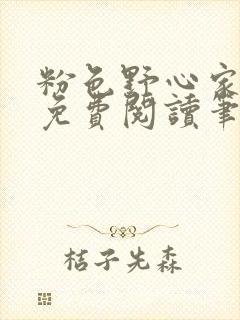 粉色野心家
免費閱讀筆
桔子先森